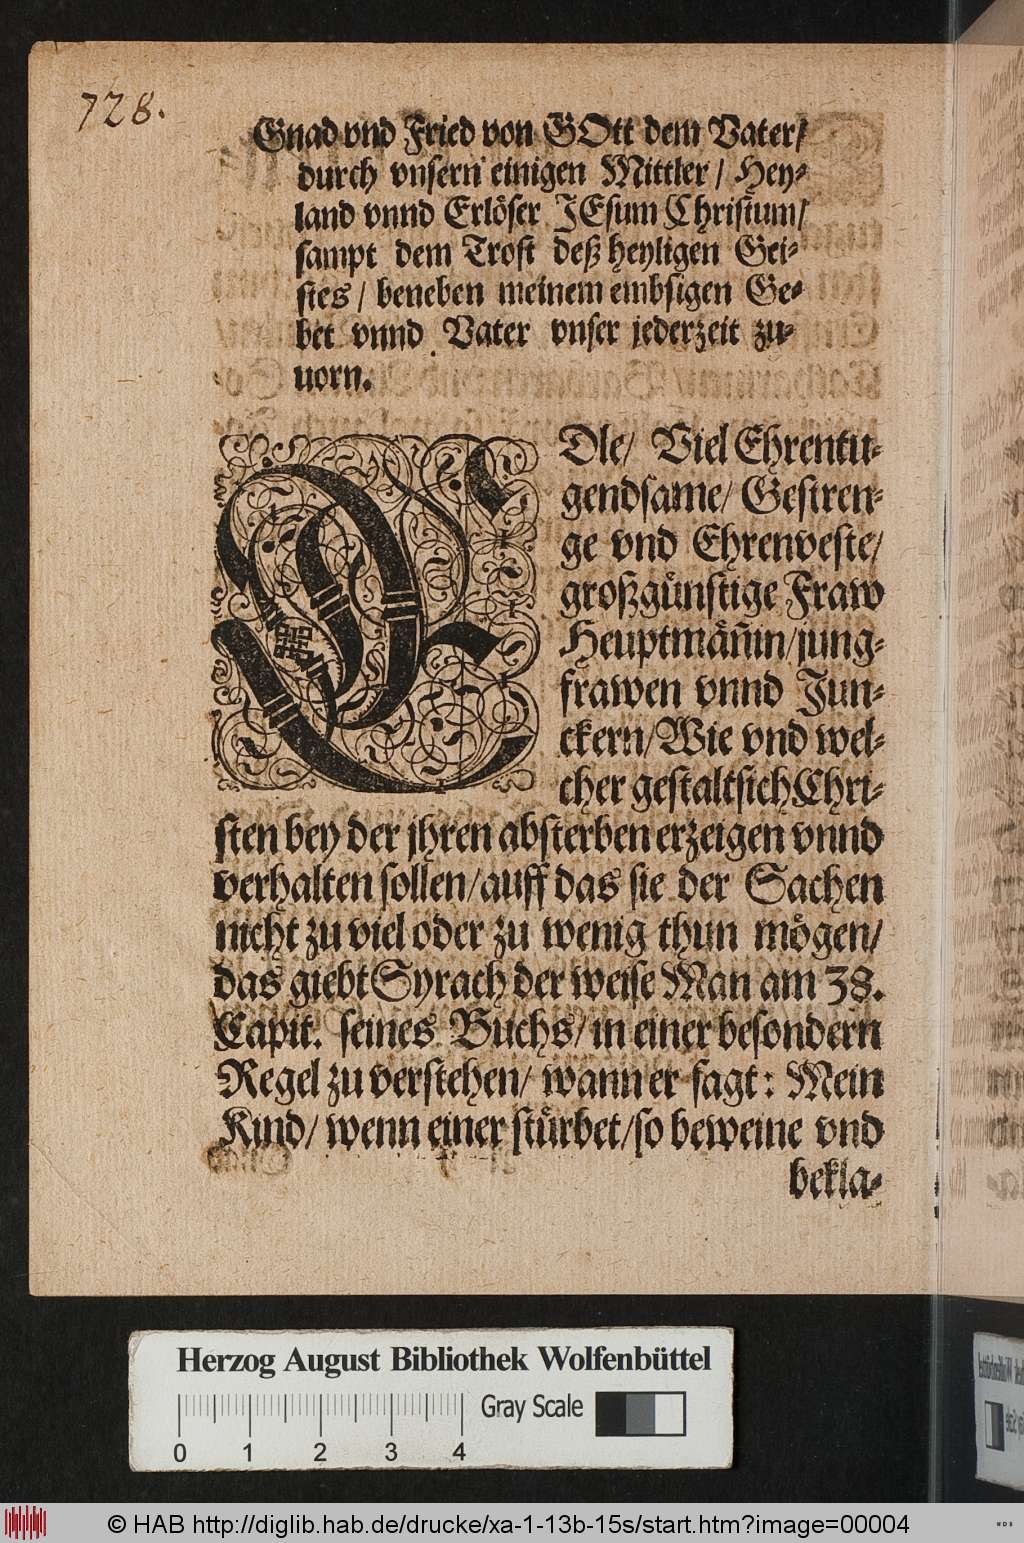 728.
Gnad vnd Fried von GOtt dem Vater/
durch vnsern einigen Mittler / Hey-
land vnnd Erlöser JEsum Christum/
sampt dem Trost deß heyligen Gei-
stes / beneben meinem embsigen Ge-
bet vnnd Vater vnser jederzeit zu-
uorn.
EDle/ Viel Ehrentu-
gendsame/ Gestren-
ge vnd Ehrenveste/
großgünstige Fraw
Heuptmän̄in/jung-
frawen vnnd Jun-
ckern/Wie vnd wel-
cher gestalt sich Chri-
sten bey der jhren absterben erzeigen vnnd
verhalten sollen/auff das sie der Sachen
nicht zu viel oder zu wenig thun mögen/
das giebt Syrach der weise Man am 38.
Capit. seines Buchs/ in einer besondern
Regel zu verstehen/ wann er sagt: Mein
Kind/ wenn einer stürbet/so beweine vnd
bekla-
Herzog August Bibliothek Wolfenbüttel
Gray Scale
0 1 2 3 4
© HAB http://diglib.hab.de/drucke/xa-1-13b-15s/start.htm?image=00004